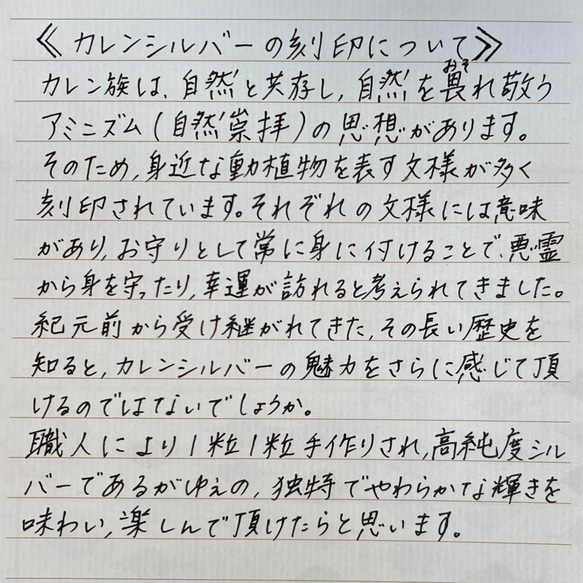 《カレンシルバーの刻印について》
カレン族は、自然と共存し、自然を畏(おそ)れ敬う
アミニズム(自然崇拝)の思想があります。
そのため、身近な動植物を表す文様が多く
刻印されています。それぞれの文様には意味
があり、お守りとして常に身に付けることで、悪霊
から身を守ったり、幸運が訪れると考えられてきました。
紀元前から受け継がれてきた、その長い歴史を
知ると、カレンシルバーの魅力をさらに感じて頂
けるのではないでしょうか。
職人により1粒1粒手作りされ、高純度シル
バーであるがゆえの、独特でやわらかな輝きを
味わい、楽しんで頂けたらと思います。